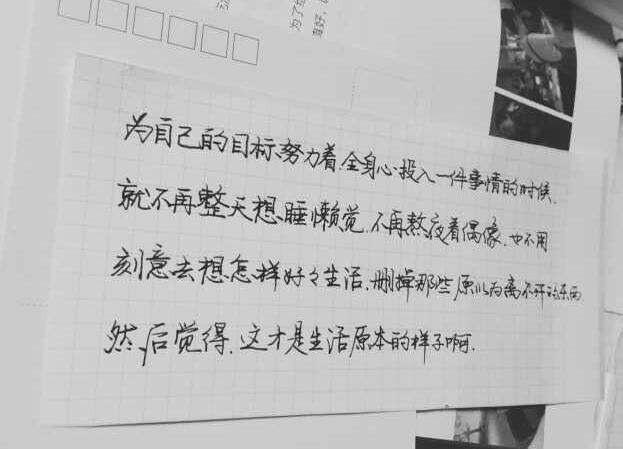 为自己的目标、努力着.全身心投入一件事情的时候.
就不再整天想睡懒觉.不再熬夜看偶像.也不用
刻意去想怎样好々生活.删掉那些原以为离不开的东西
然后觉得.这才是生活原本的样子啊.